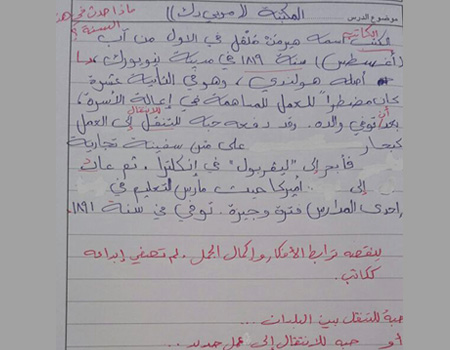 ماذا حدث في هذه السنة؟
موضوع الدرس المكتبة ((موبي دك))
الكاتب
الكتب اسمه هيرمن ملفل في الاول من آب
(أغسطس) سنة ١٨١٩ في مدينة نيويورك،
أصله هولندي، وهو في الثانية عشرة
كان مضطراً للعمل للمساهمة في إعالة الأسرة،
للانتقال
بعد أن توفي والده. وقد دفعه حبه للتنقل إلى العمل
كبحار على متن سفينة تجارية
فأبحر إلى "ليفربول" في إنكلترا. ثم عاد
إلى أميركا حيث مارس التعليم في
إحدى المدارس فترة وجيزة. توفي في سنة ١٨٩١.
ينقصه ترابط الأفكار وإكمال الجمل. ولم تصفي إبداعه
ككاتب.
حبه للتنقل بين البلدان...
أو حبه للانتقال إلى عمل جديد...